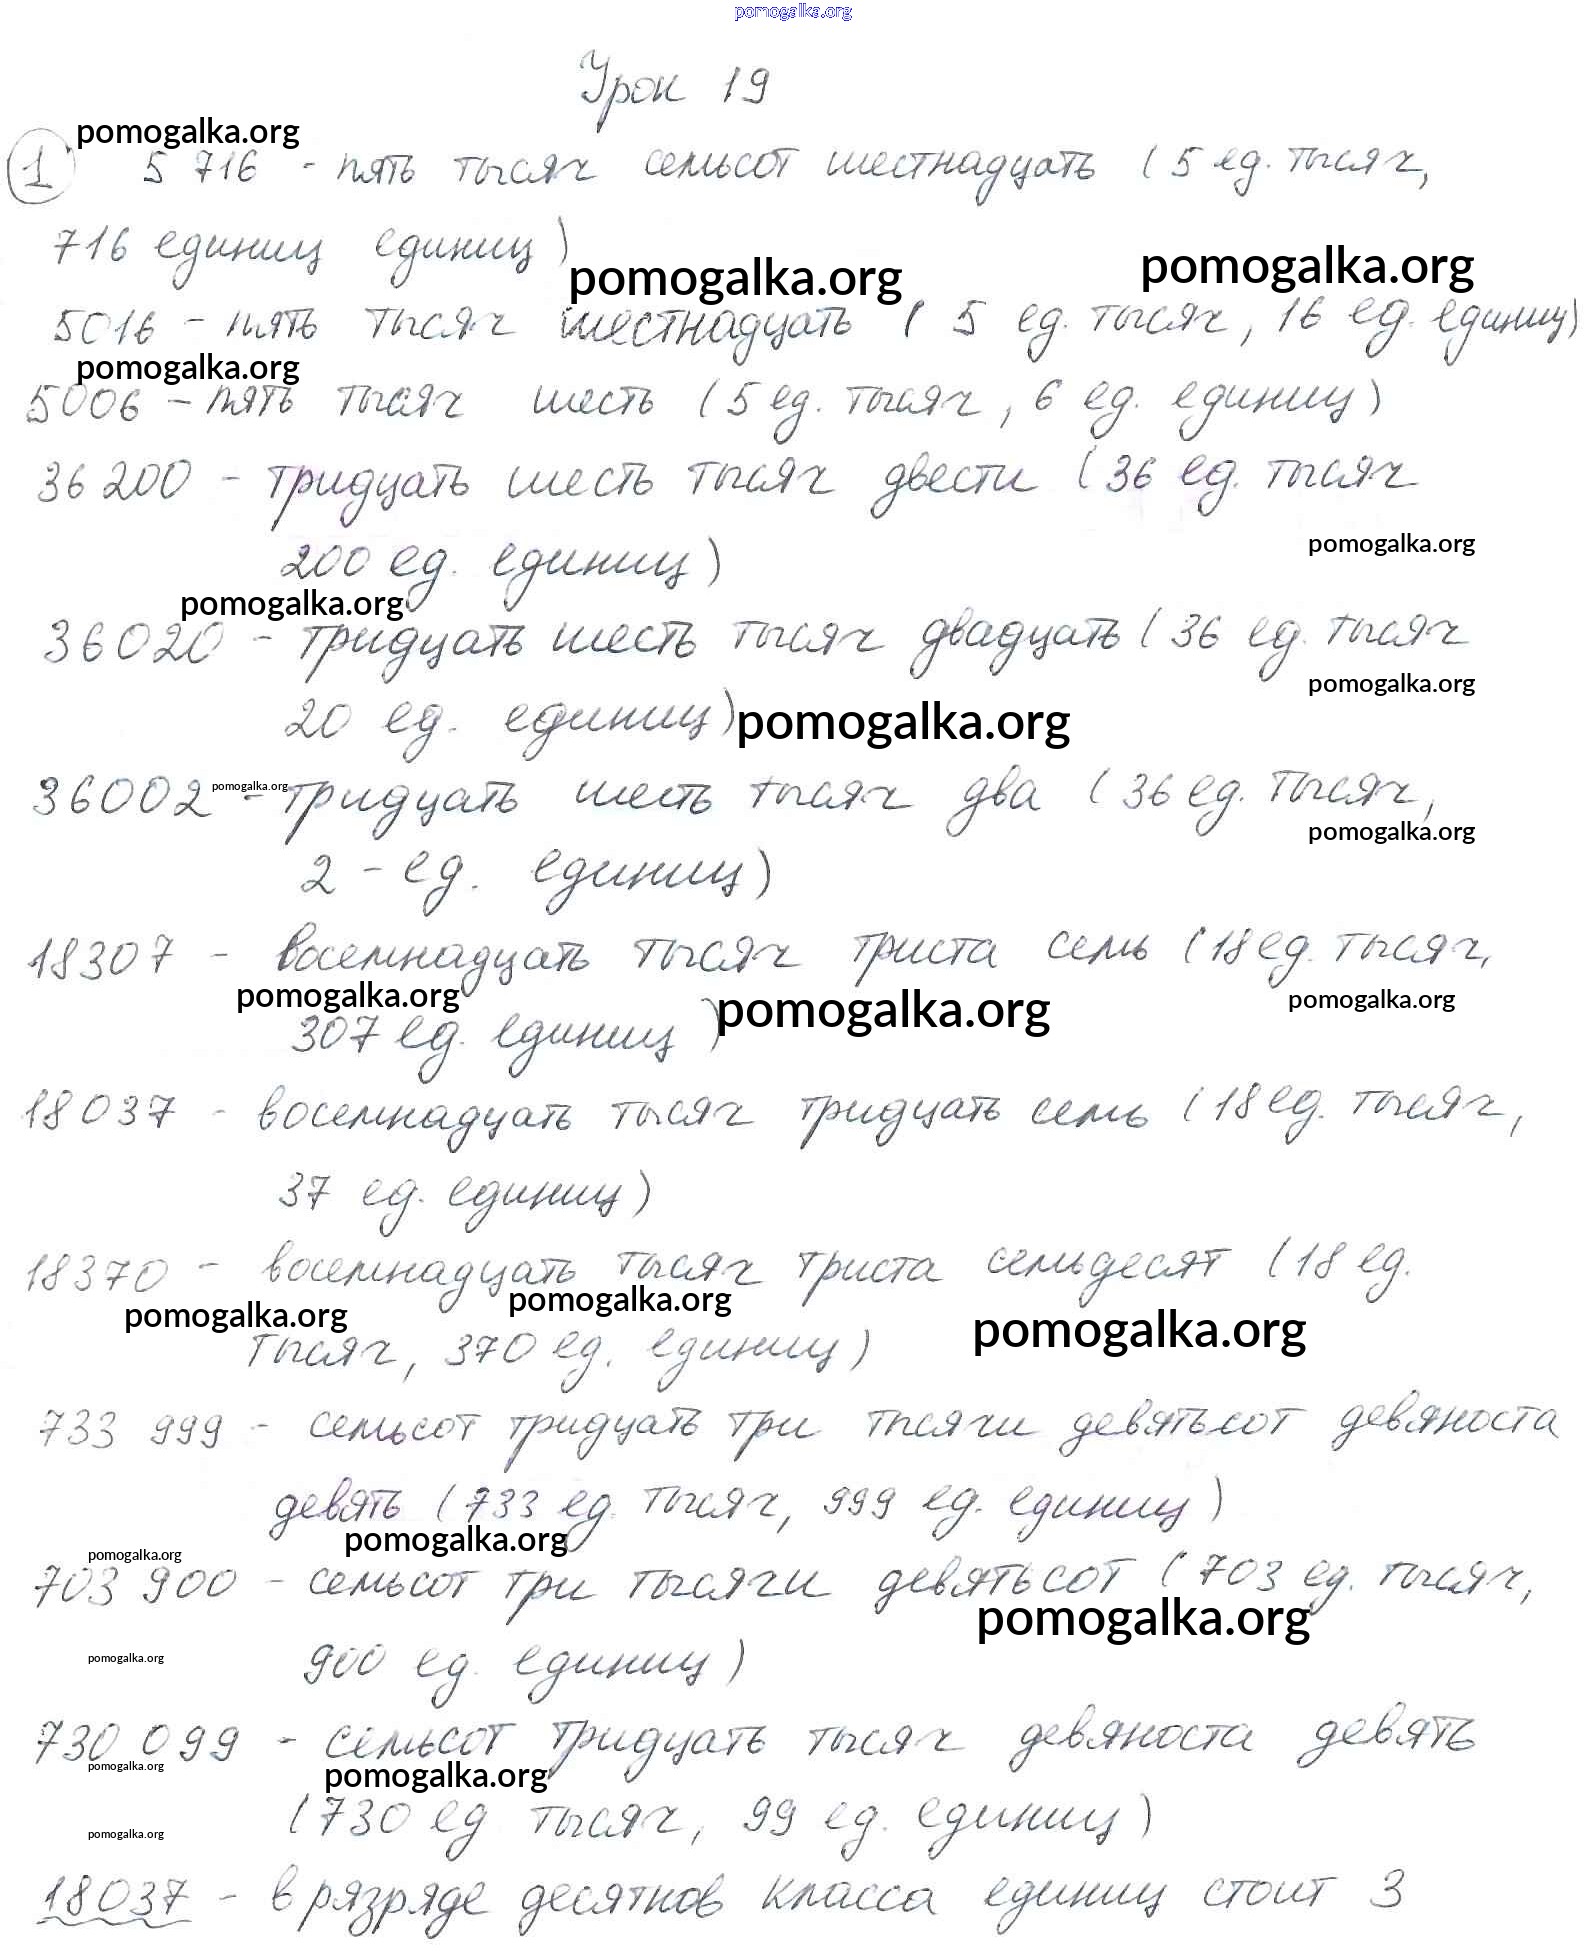 pomogalka.org
Урок 19
pomogalka.org
1 5 716 - пять тысяч семьсот шестнадцать (5 ед. тысяч,
716 единиц единиц)
pomogalka.org pomogalka.org
5016 - пять тысяч шестнадцать (5 ед. тысяч, 16 ед. единиц)
pomogalka.org
5006 - пять тысяч шесть (5 ед. тысяч, 6 ед. единиц)
36 200 - тридцать шесть тысяч двести (36 ед. тысяч
pomogalka.org
200 ед. единиц)
pomogalka.org
36020 - тридцать шесть тысяч двадцать (36 ед. тысяч
pomogalka.org
20 ед. единиц) pomogalka.org
36002 pomogalka.org - тридцать шесть тысяч два (36 ед. тысяч,
pomogalka.org
2 - ед. единиц)
18307 - восемнадцать тысяч триста семь (18 ед. тысяч,
pomogalka.org pomogalka.org pomogalka.org
307 ед. единиц)
18037 - восемнадцать тысяч тридцать семь (18 ед. тысяч,
37 ед. единиц)
18370 - восемнадцать тысяч триста семьдесят (18 ед.
pomogalka.org pomogalka.org pomogalka.org
тысяч, 370 ед. единиц)
733 999 - семьсот тридцать три тысячи девятьсот девяноста
девять (733 ед. тысяч, 999 ед. единиц)
pomogalka.org
pomogalka.org
703 900 - семьсот три тысячи девятьсот (703 ед. тысяч,
pomogalka.org
pomogalka.org
900 ед. единиц)
730 099 - семьсот тридцать тысяч девяноста девять
pomogalka.org pomogalka.org
(730 ед тысяч, 99 ед. единиц)
pomogalka.org
18037 - в рязряде десятков класса единиц стоит 3